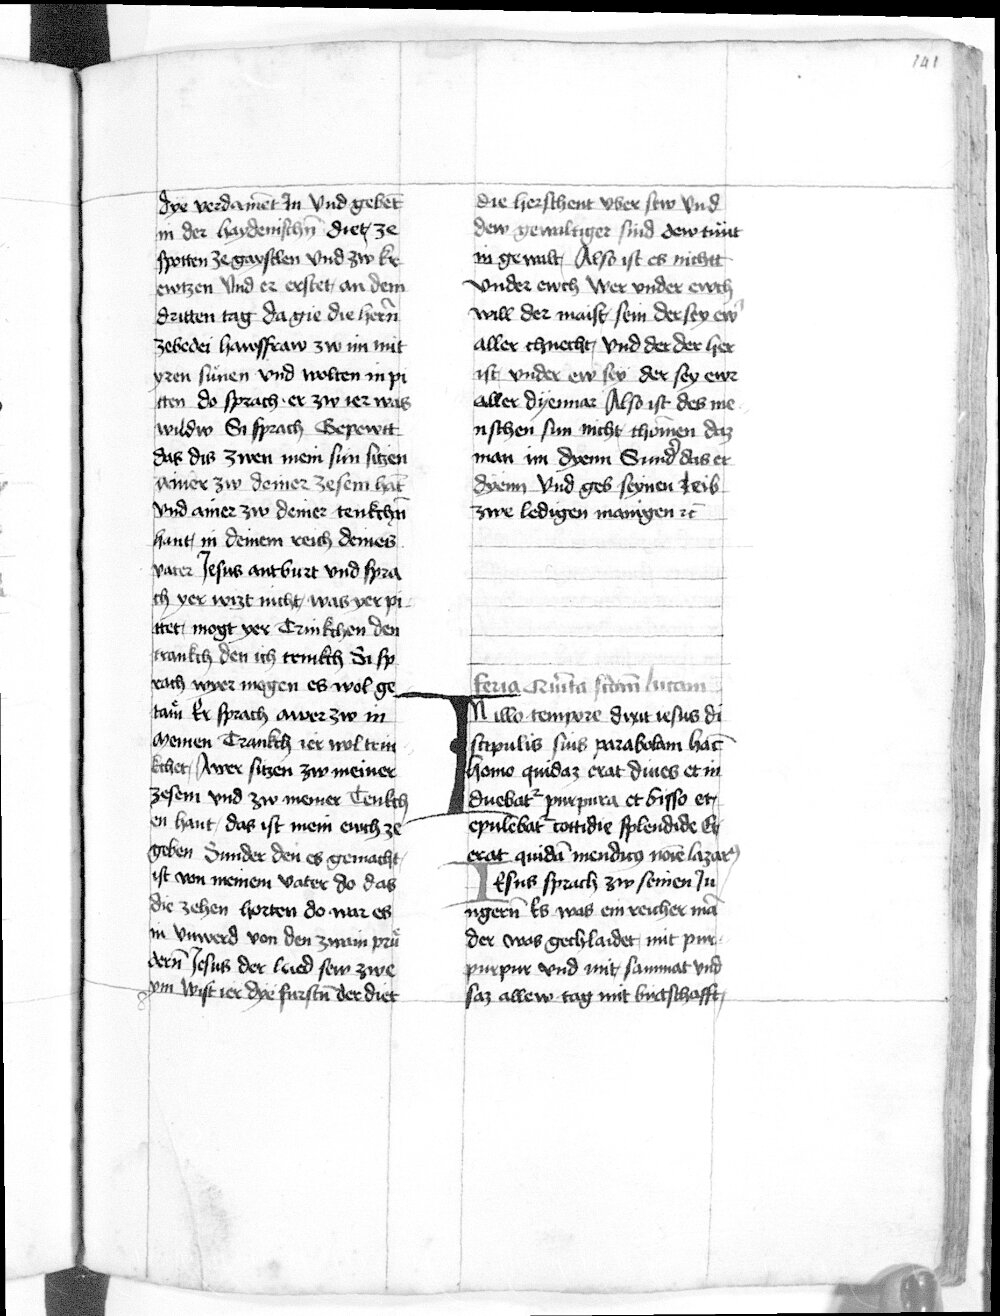 141
dye verdamēt In Vnd gebēt
in der haydenischn̄ diet ze
spotten ze gaystlen vnd zw kr
ewtzen Vnd er erstet an dem
dritten tag da gie die hern̄
zebedei hawsfraw zw im mit
yren sünen vnd wolten in pi
tten do sprach er zw ier was
wildw Si sprach Gepewtt
das dis zwen mein sün sitzen
ainer zw deiner zesem hāt
vnd ainer zw deiner tenkchn̄
hant in deinem reich deines
vater Jesus antburt vnd spra
ch yer wizt nicht was yer pi
ttet mogt yer Trinkchen den
trankch den ich trinkch Si sp
rach wyer mogen es wol ge
tain Er sprach awer zw in
Meinen Trankch ier wol trin
kchet Awer sitzen zw meiner
zesem vnd zw meiner Tenkch
en hant das ist mein ewch ze
geben Sunder den es gemacht
ist von meinem vater do das
die zehen horten do war es
in vnwerd von den zwain prü
dern̄ Jesus der lued sew zwe
ym Wist ier dye furstn̄ der diet
die herschent vber sew Vnd
dew gewaltiger sind dew tünt
in gewalt Also ist es nichtt
vnder ewch Wer vnder ewch
will der maist sein der sey ew̄
aller chnecht Vnd der der her
ist vnder ew sey der sey ewr
aller dyennar Also ist des me
nschen sun nicht chōmen daz
man im dyenn Sund̄ das er
dyenn Vnd geb seynen leib
zwe ledigen manigen ⁊c̄
feria Quīta scdm̄ lucam
IN illo tempore dixit iesus di
scipulis suis parabolam hāc
homo quidaz erat diues et in
duebatᷣ purpura et bisso et
epulebatᷣ cottidie splendide Et
erat quidā mendicꝰ noīe lazarꝰ
IEsus sprach zw seinen Ju
ngern̄ Es was ein reicher mā
der was gechlaidet mit pur
purpur vnd mit sammat vnd
saz allew tag mit birtschafft